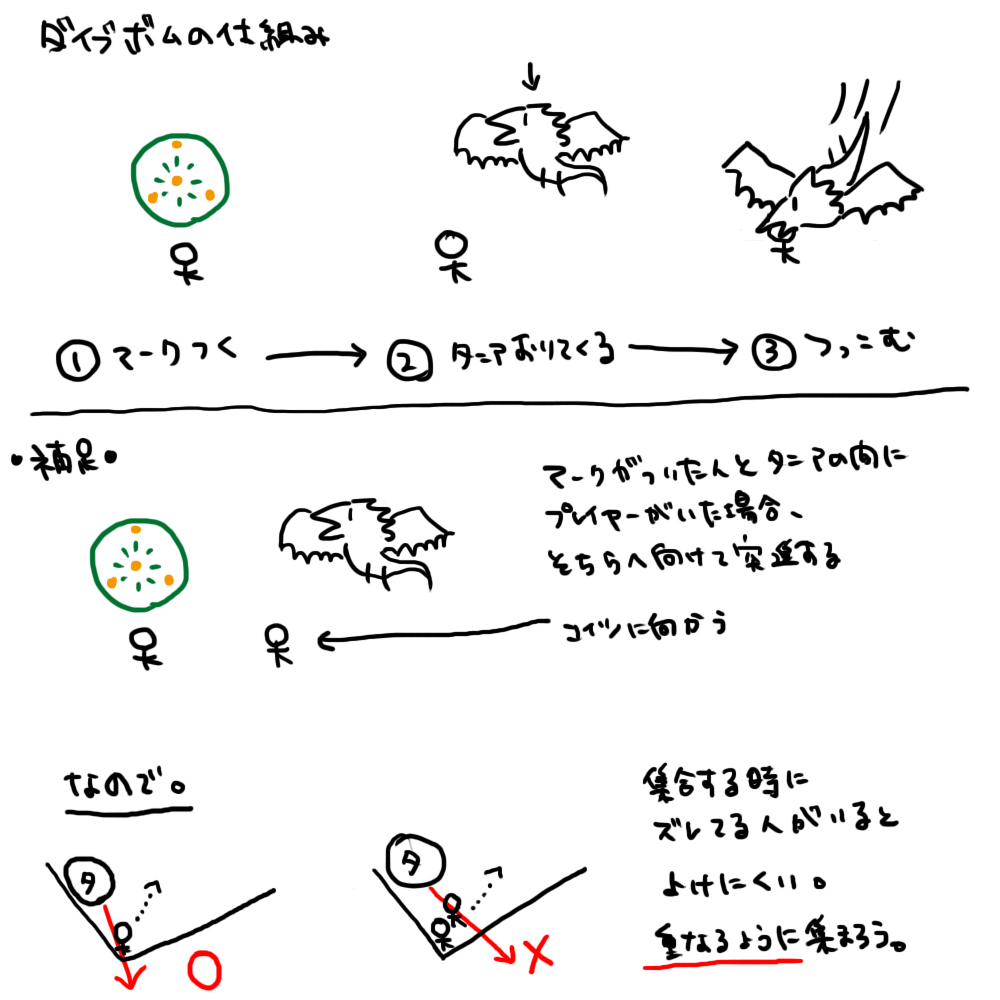 ダイブボムの仕組み
① マークつく
② タニアおりてくる
③ つっこむ
・補足・
マークがついた人とタニアの間に
プレイヤーがいた場合、
そちらへ向けて突進する
コイツに向かう
なので。
タ
○
タ
×
集合する時に
ズレてる人がいると
よけにくい。
重なるように集まろう。